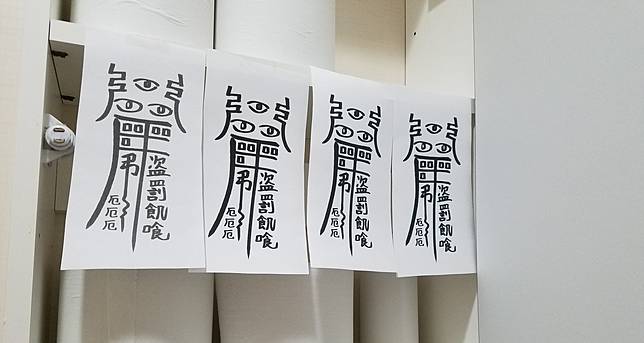 弔
盗罰飢喰
厄厄厄
弔
盗罰飢喰
厄厄厄
弔
盗罰飢喰
厄厄厄
弔
盗罰飢喰
厄厄厄